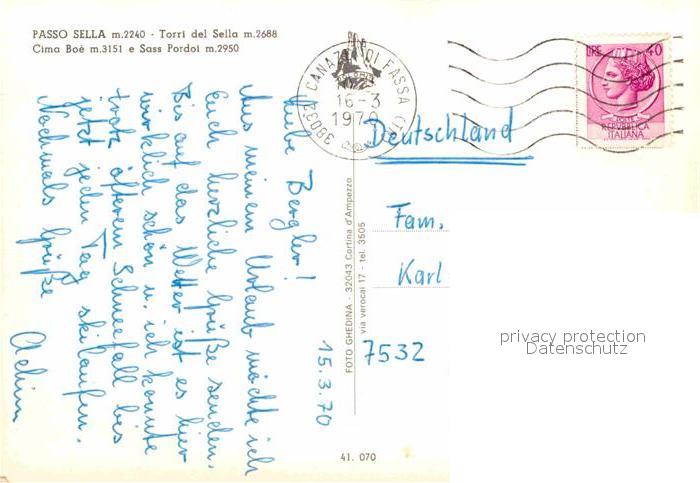 PASSO SELLA m.2240 - Torri del Sella m.2688
Cima Boè m.3151 e Sass Pordoi m.2950
38032 CANAZEI DI FASSA
16-3
1970
LIRE 40
POSTE
REPVBBLICA
ITALIANA
15.3.70
Liebe Bergler!
Aus meinem Urlaub möchte ich
Euch herzliche Grüße senden.
Bis auf das Wetter ist es hier
wirklich schön u. ich konnte
trotz öfterem Schneefall bis
jetzt jeden Tag skilaufen.
Nochmals Grüße
Achim
FOTO GHEDINA - 32043 Cortina d'Ampezzo
via verocai 17 - tel. 3505
Deutschland
Fam.
Karl
7532
privacy protection
Datenschutz
41. 070